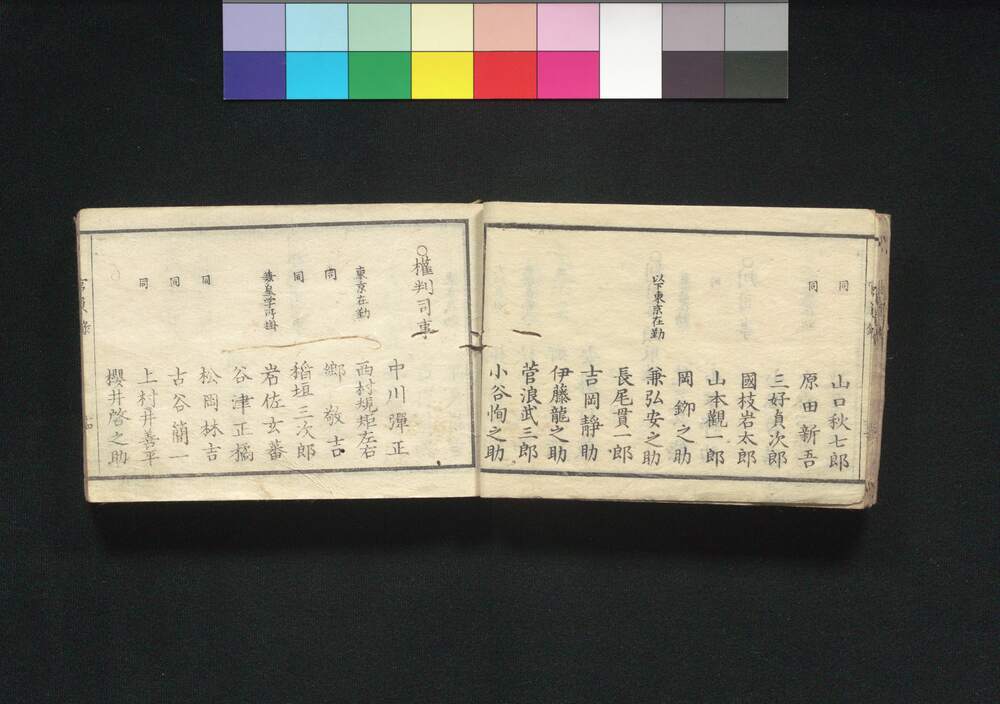 同 山口秋七郎
同 原田新吾
三好貞次郎
國枝岩太郎
山本觀一郎
岡鉚之助
以下東京在勤 兼弘安之助
長尾貫一郎
吉岡靜助
伊藤龍之助
菅浪武三郎
小谷恂之助
○權判司事
中川彈正
東京在勤 西村規矩左右
同 鄉敬吉
同 稻垣三次郎
岩佐玄蕃
谷津正橘
同 松岡林吉
同 古谷簡一
同 上村井善平
櫻井啓之助